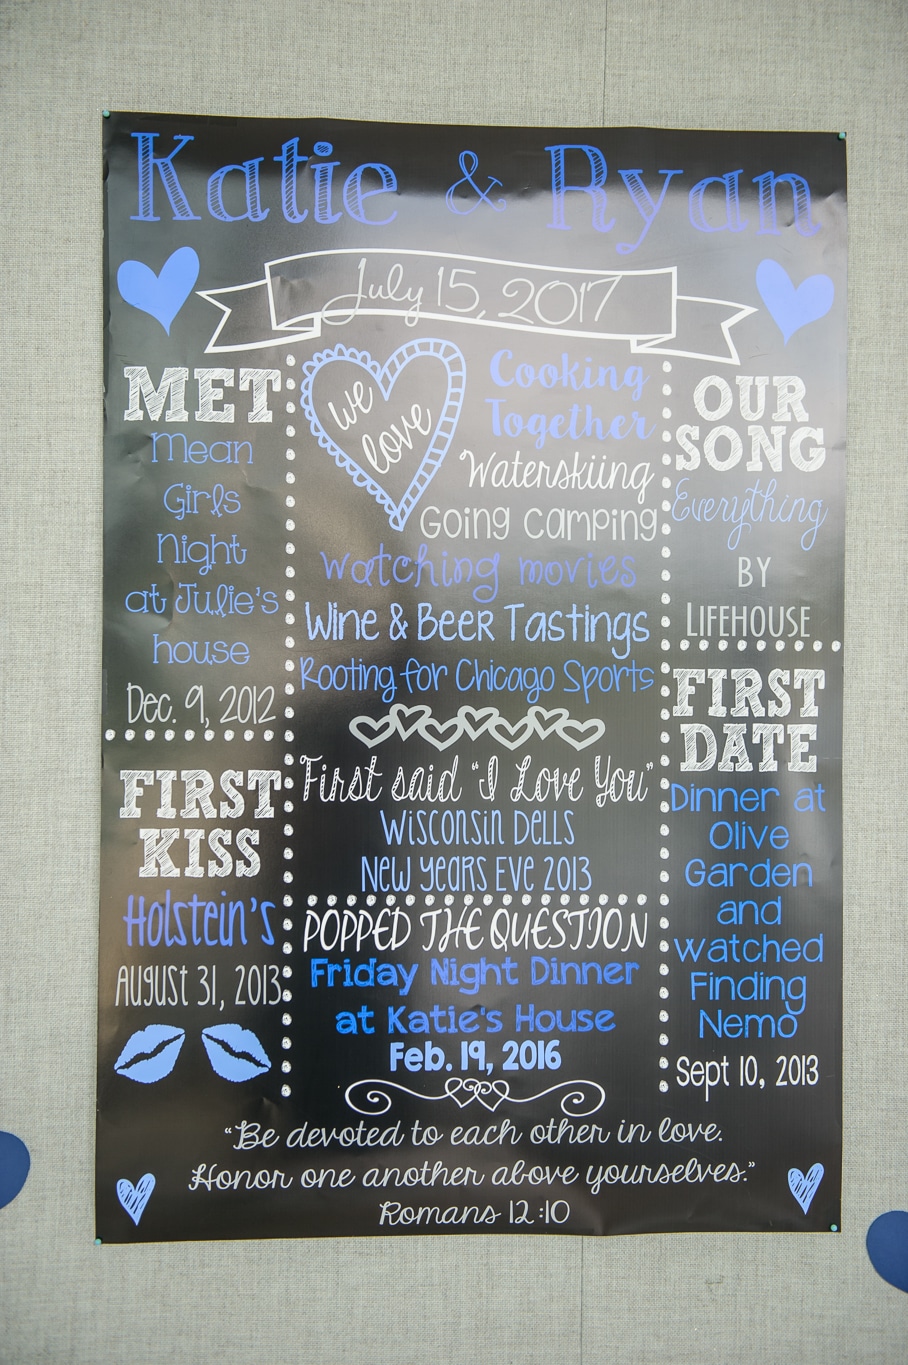 Katie & Ryan
July 15, 2017
MET
Mean
Girls
Night
at Julie's
house
Dec. 9, 2012
FIRST
KISS
Holstein's
August 31, 2013
we
love
Cooking
Together
Waterskiing
Going camping
watching movies
Wine & Beer Tastings
Rooting for Chicago Sports
First said "I Love You"
Wisconsin Dells
New Years Eve 2013
POPPED THE QUESTION
Friday Night Dinner
at Katie's House
Feb. 19, 2016
OUR
SONG
Everything
BY
LIFEHOUSE
FIRST
DATE
Dinner at
Olive
Garden
and
watched
Finding
Nemo
Sept 10, 2013
"Be devoted to each other in love.
Honor one another above yourselves."
Romans 12:10